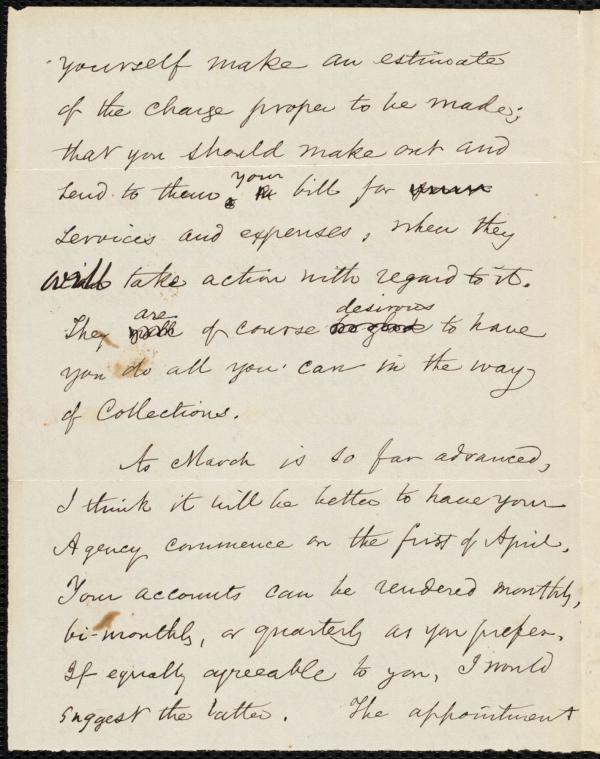 yourself make an estimate
of the charge proper to be made;
that you should make out and
send to them your bill for
services and expenses, when they
will take action with regard to it.
They are of course desirous to have
you do all you can in the way
of Collections.
As March is so far advanced,
I think it will be better to have your
Agency commence on the first of April.
Your accounts can be rendered monthly,
bi-monthly, or quarterly as you prefer.
If equally agreeable to you, I would
suggest the latter. The appointment